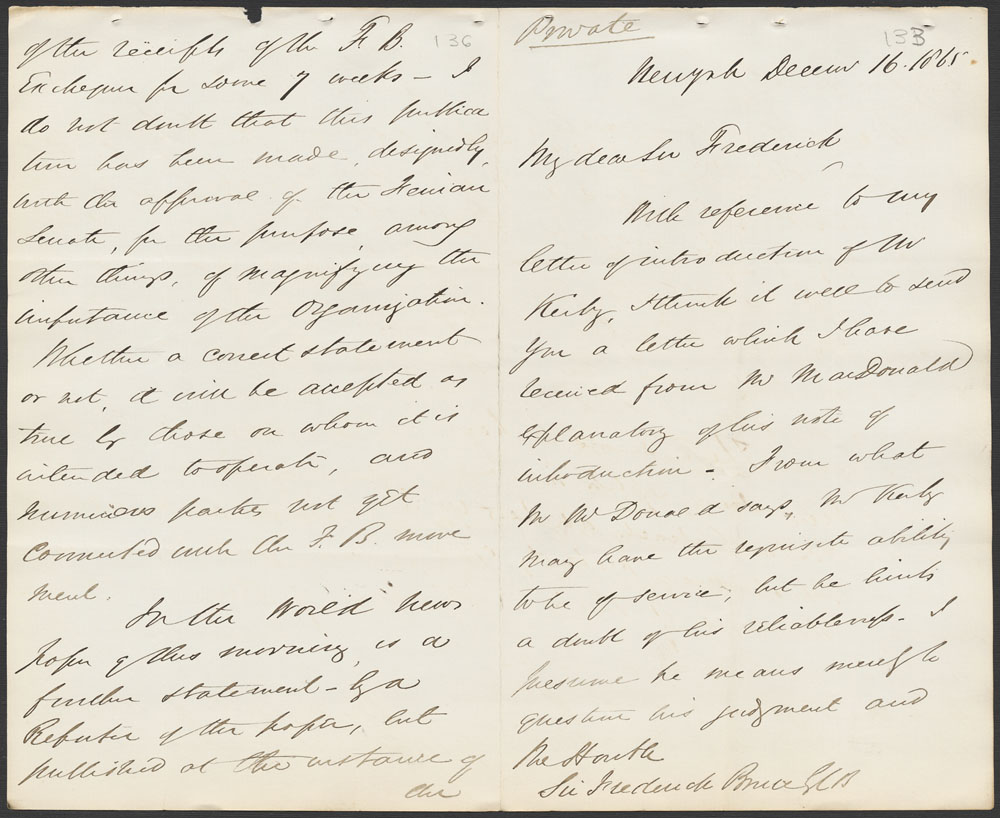 136
of the receipts of the F. B.
Exchequer for some 7 weeks – I
do not doubt that this publica
tion has been made, designedly,
with the approval of the Fenian
Senate, for the purpose, among
other things, of magnifying the
importance of the Organization.
Whether a correct statement
or not, it will be accepted as
true by those on whom it is
intended to operate, and
numerous parties not yet
connected with the F. B. move
ment.
In the World News
paper of this morning, is a
further statement – by a
Reporter of the paper, but
published at the instance of
the
Private
133
New York Decem 16. 1865
My dear Sir Frederick
With reference to my
letter of introduction of Mr
Kerby, I think it well to send
you a letter which I have
received from Mr MacDonald
explanatory of his note of
introduction – From what
Mr McDonald says, Mr Kerby
may have the requisite ability
to be of service, but he hints
a doubt of his reliableness – I
presume he means merely to
question his judgment and
The Honble
Sir Frederick Bruce GCB